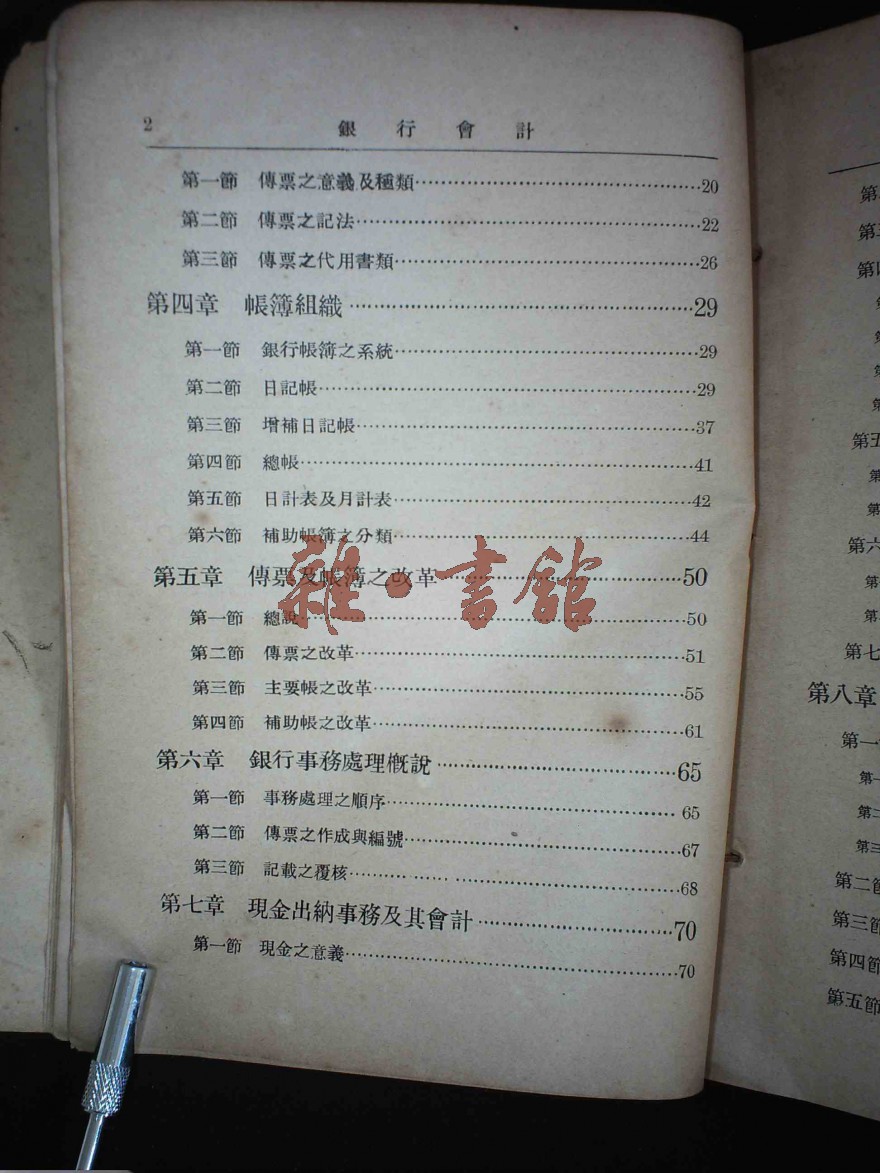 2 銀行會計
第一節 傳票之意義及種類……20
第二節 傳票之記法……22
第三節 傳票之代用書類……26
第四章 帳簿組織……29
第一節 銀行帳簿之系統……29
第二節 日記帳……29
第三節 增補日記帳……37
第四節 總帳……41
第五節 日計表及月計表……42
第六節 補助帳簿之分類……44
第五章 傳票及帳簿之改革……50
第一節 總說……50
第二節 傳票之改革……51
第三節 主要帳之改革……55
第四節 補助帳之改革……61
第六章 銀行事務處理概說……65
第一節 事務處理之順序……65
第二節 傳票之作成與編號……67
第三節 記載之覆核……68
第七章 現金出納事務及其會計……70
第一節 現金之意義……70
雜·書館
第
第三
第四
第五
第
第
第六
第
第
第七
第八章
第一
第一
第二
第三
第二節
第三節
第四節
第五節